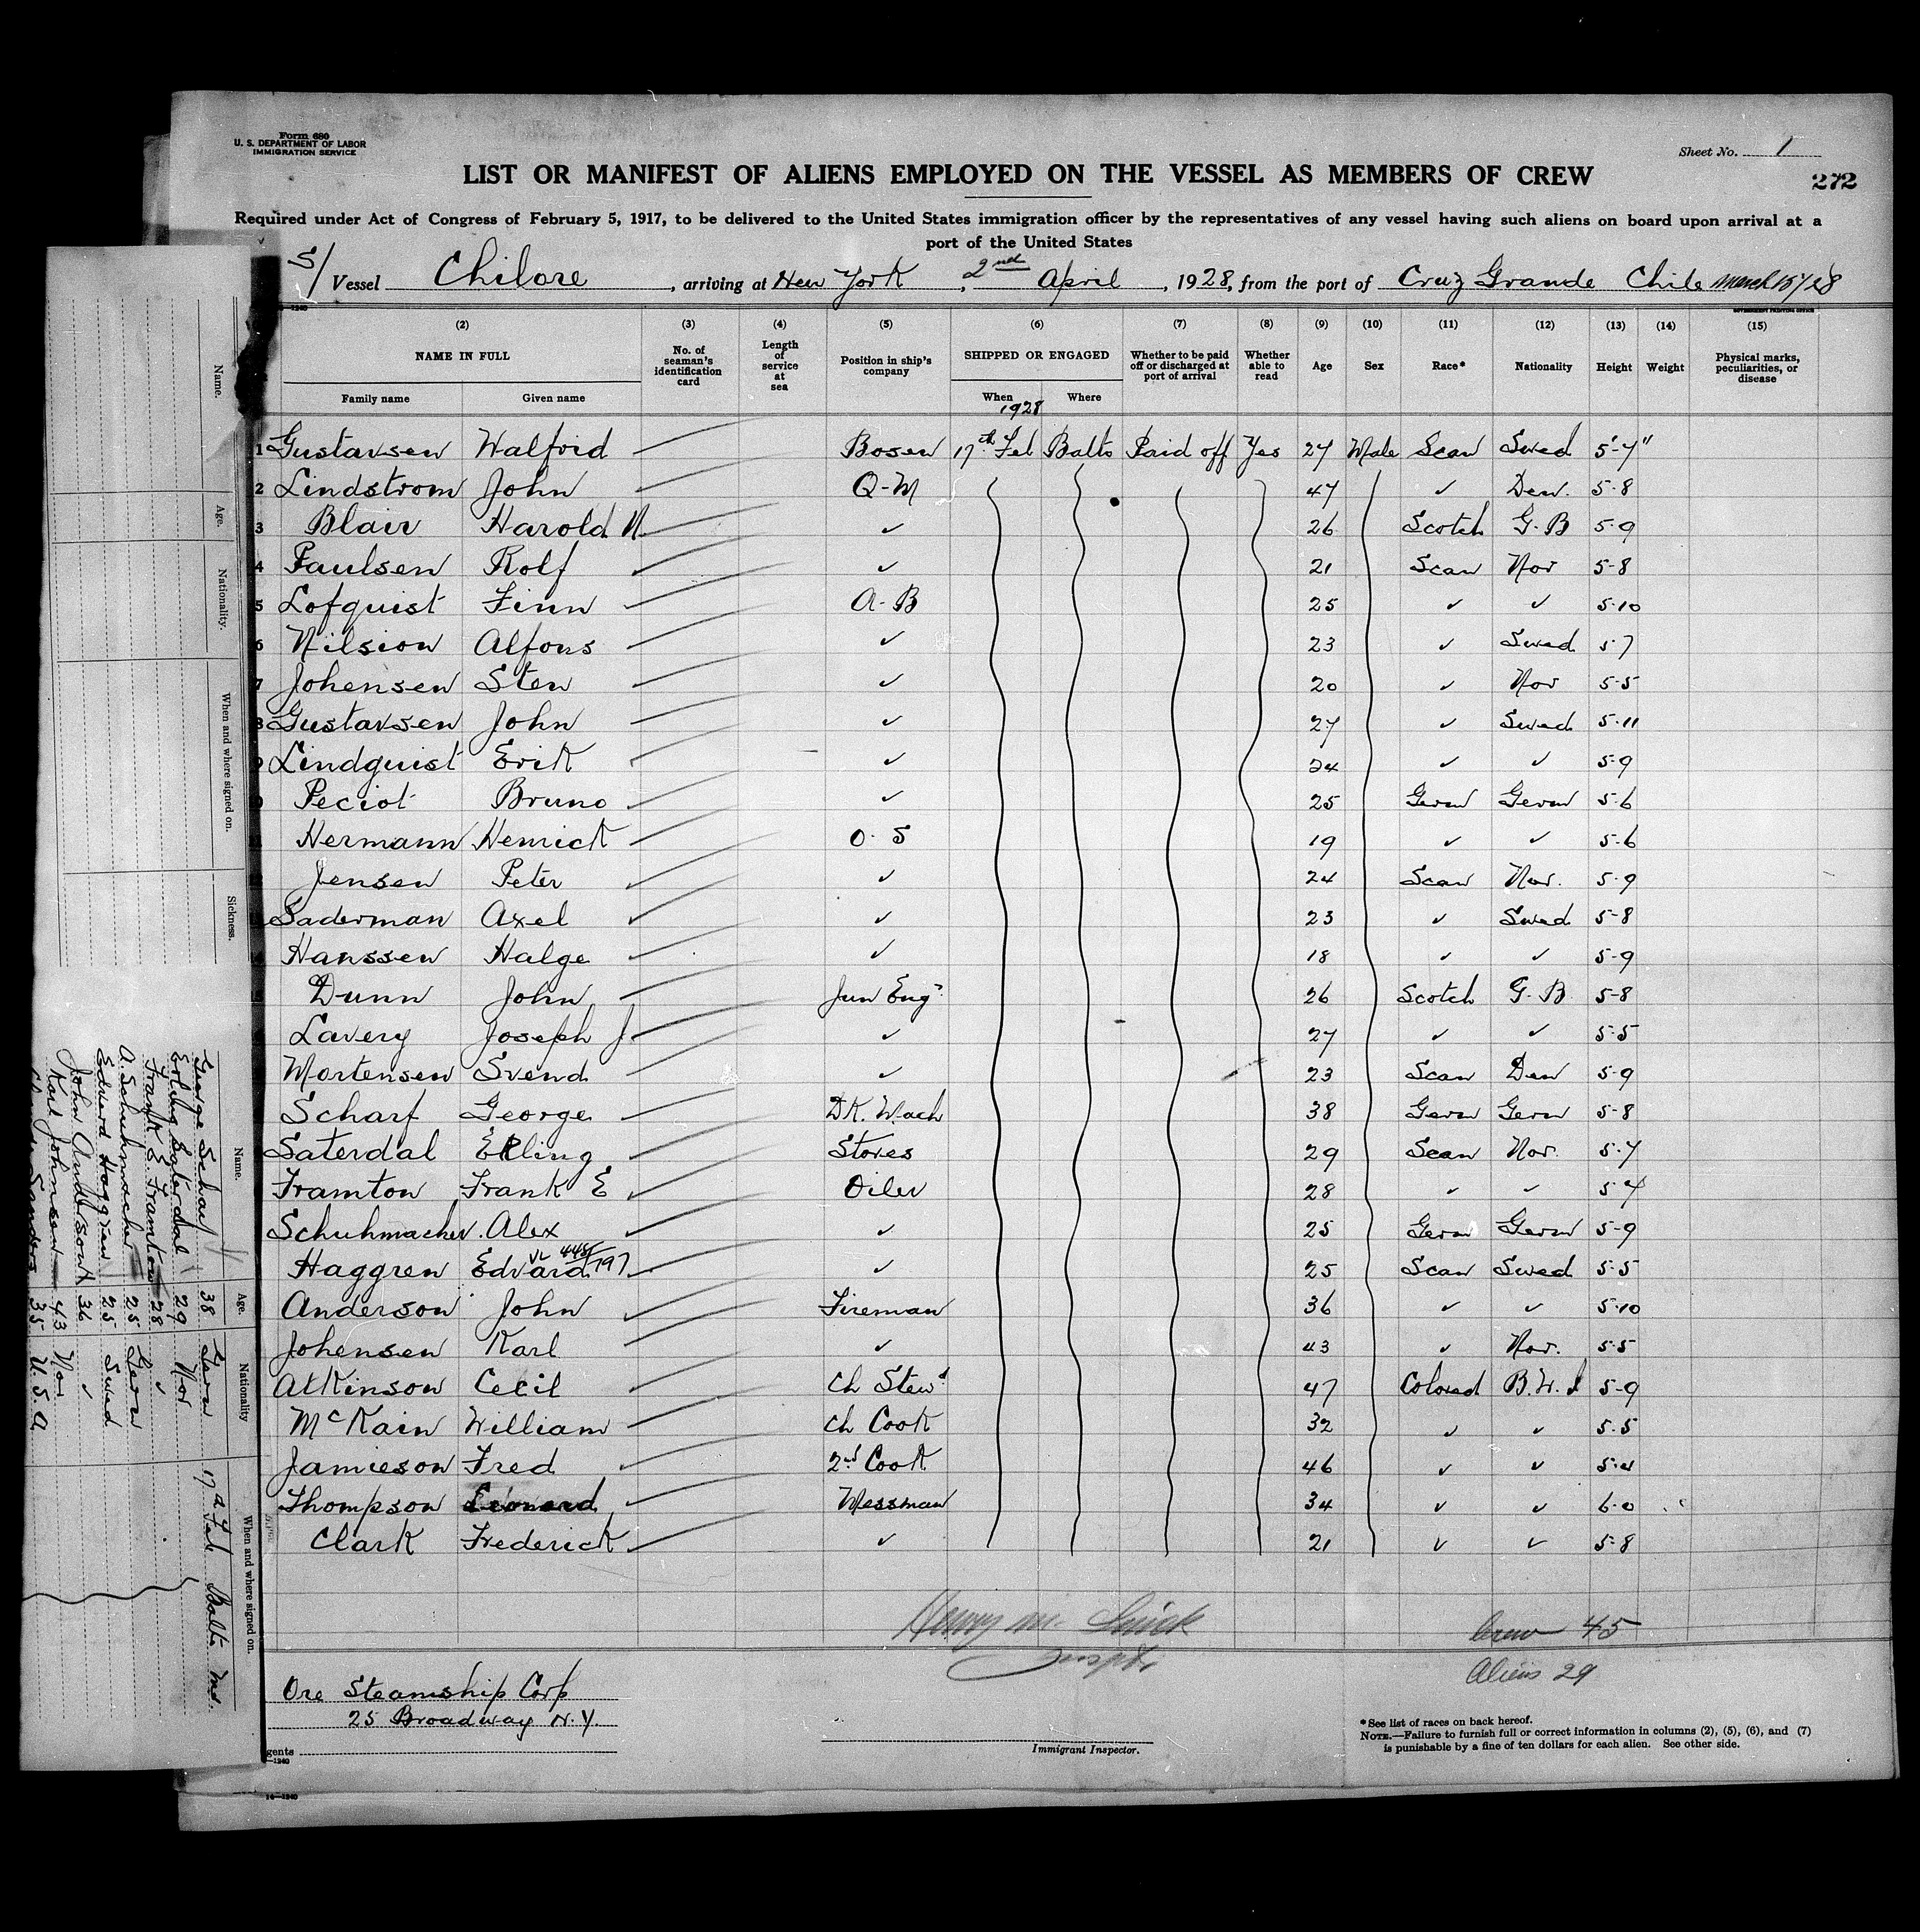 Form 680
U. S. DEPARTMENT OF LABOR
IMMIGRATION SERVICE
Sheet No. 1
LIST OR MANIFEST OF ALIENS EMPLOYED ON THE VESSEL AS MEMBERS OF CREW
272
Required under Act of Congress of February 5, 1917, to be delivered to the United States immigration officer by the representatives of any vessel having such aliens on board upon arrival at a
port of the United States
S/ Vessel Chilore, arriving at New York, 2nd April, 1928, from the port of Cruz Grande Chile March 15/28
(2) (3) (4) (5) (6) (7) (8) (9) (10) (11) (12) (13) (14) (15)
NAME IN FULL No. of seaman's identification card Length of service at sea Position in ship's company SHIPPED OR ENGAGED Whether to be paid off or discharged at port of arrival Whether able to read Age Sex Race* Nationality Height Weight Physical marks, peculiarities, or disease
Family name Given name When Where
1928
1 Gustavsen Walfrid Bosen 17th Feb Balto Paid off Yes 27 Male Scan Swed 5'-7"
2 Lindstrom John Q-M 47 ✓ Den. 5-8
3 Blair Harold N. ✓ 26 Scotch G.B 5-9
4 Paulsen Rolf ✓ 21 Scan Nor 5-8
5 Lofquist Finn A-B 25 ✓ ✓ 5-10
6 Nilsion Alfons ✓ 23 ✓ Swed 5-7
7 Johensen Sten ✓ 20 ✓ Nor 5-5
8 Gustavsen John ✓ 27 ✓ Swed 5-11
9 Lindquist Erik ✓ 24 ✓ ✓ 5-9
10 Peciot Bruno ✓ 25 Germ Germ 5-6
11 Hermann Henrick O. S 19 ✓ ✓ 5-6
12 Jensen Peter ✓ 24 Scan Nor. 5-9
13 Saderman Axel ✓ 23 ✓ Swed 5-8
14 Hanssen Halge ✓ 18 ✓ ✓ 5-9
15 Dunn John Jun Engr 26 Scotch G.B 5-8
Lavery Joseph J. ✓ 27 ✓ ✓ 5-5
Mortensen Svend ✓ 23 Scan Den 5-9
Scharf George DK. Wach 38 Germ Germ 5-8
Saterdal Erling Stores 29 Scan Nor. 5-7
Framton Frank E Oiler 28 ✓ ✓ 5-4
Schuhmacher. Alex ✓ 25 Germ Germ 5-9
Haggren Edvard ✓ 25 Scan Swed 5-5
Anderson John Fireman 36 ✓ ✓ 5-10
Johensen Karl ✓ 43 ✓ Nor. 5-5
Atkinson Cecil Ch Stewd 47 Colored B.W.I 5-9
McKain William Ch Cook 32 ✓ ✓ 5-5
Jamieson Fred 2nd Cook 46 ✓ ✓ 5-4
Thompson Leonard Messman 34 ✓ ✓ 6-0
Clark Frederick ✓ 21 ✓ ✓ 5-8
Henry M.
Inspr.
Crew 45
Aliens 29
Ore Steamship Corp
25 Broadway N.Y.
gents
Immigrant Inspector.
*See list of races on back hereof.
NOTE.—Failure to furnish full or correct information in columns (2), (5), (6), and (7)
is punishable by a fine of ten dollars for each alien. See other side.
14—1240
Name. Age. Nationality. When and where signed on. Sickness.
Name. Age. Nationality When and where signed on.
George Scharf 38 Germ 17th Feb Balto Md.
Erling Saterdal 29 Nor
Frank E. Framton 28 ✓
A. Schuhmacher 25 Germ
Edward Haggren 25 Swed
John Anderson 36 ✓
Karl Johnsen 43 Nor
Sanders 35 U.S.A